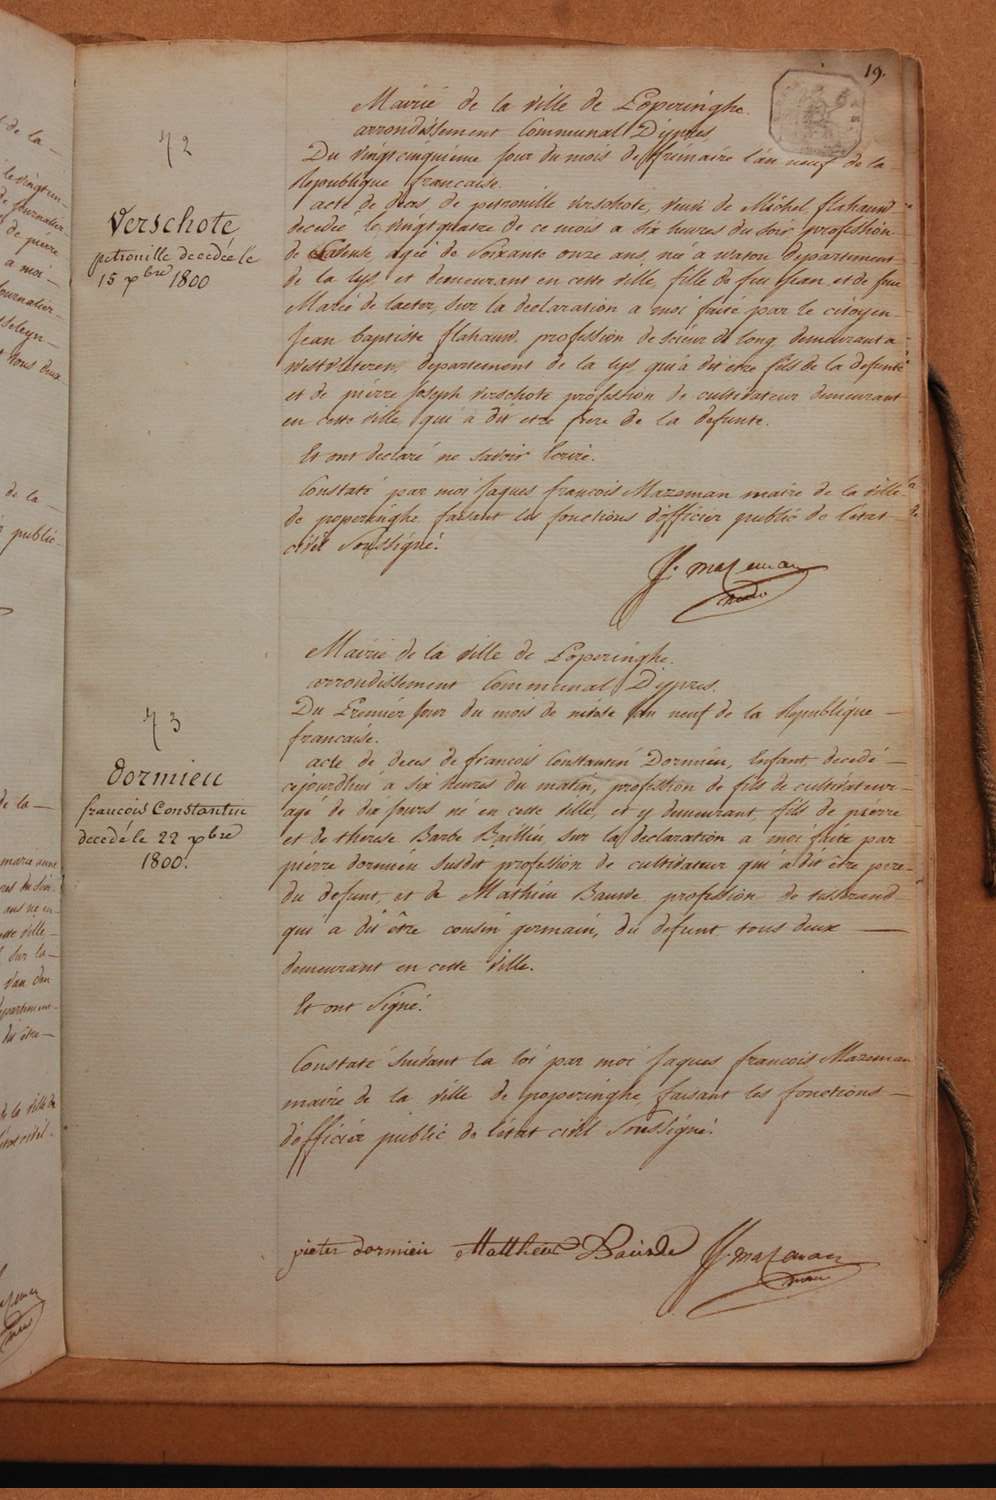 19.
Mairié de la ville de Poperinghe.
arrondissement Communal D'ypres
72
Du vingt cinquieme Jour du mois de frimaire l'an neuf de la
Republique francaise.
Verschote
petronille decedée le
15 xbre 1800
acte de deces, de petronille verschote, veuve de Michel flahauw
decedée le vingt quatre de ce mois a six heures du soir profession
de fileuse, agée de soixante onze ans, née a waton departement
de la lys, et demeurant en cette ville, fille de feu Jean, et de feue
Marie de laeter, sur la declaration a moi faite par le citoyen
Jean baptiste flahauw, profession de scieur de long demeurant a
westvleteren, departement de la lys, qui à dit etre fils de la defunte
et de piérre Joseph verschote profession de cultivateur demeurant
en cette ville, qui à dit etre frere de la defunte.
Et ont declaré ne savoir Ecrire.
Constaté par moi Jaques francois Mazeman maire de la ville
de poperinghe faisant les fonctions d'officier public de l'etat
civil Soussigné.
J. mazeman
Mairié de la ville de Poperinghe.
arrondissement Communal D'ypres.
73
Du Premier Jour du mois de nivose l'an neuf de la Republique
francaise.
Dormieu
francois Constantin
decedé le 22 xbre
1800.
acte de deces de francois Constantin Dormieu, Enfant decedé
cejourdhui a six heures du matin, profession de fils de cultivateur
agé de dix Jours né en cette ville, et y demeurant, fils de pierre
et de therese Barbe Baillieu sur la declaration a moi faite par
pierre dormieu susdit profession de cultivateur qui à dit être pere
du defunt, et de Mathieu Baude profession de tisserand
qui a dit être cousin germain, du defunt tous deux
demeurant en cette ville.
Et ont Signé.
Constaté suivant la loi par moi Jaques francois Mazeman
mairé de la ville de poperinghe faisant les fonctions
d'officier public de l'etat civil Soussigné.
pieter dormieu Mattheus J. mazeman